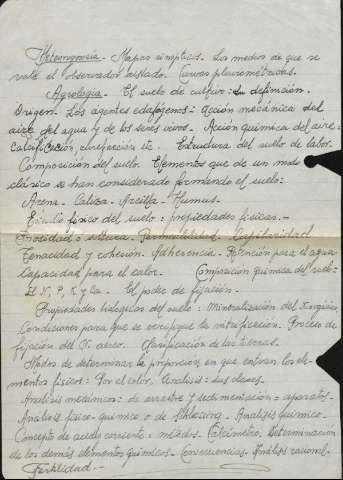 Meteorognosia - Mapas sinópticos. Los medios de que se
vale el observador aislado. Curvas pluviométricas.
Agrología. El suelo de cultivo: su definición.
Origen. Los agentes edafógenos: Acción mecánica del
aire, del agua y de los seres vivos. Acción química del aire:
calcificación, etc. Estructura del suelo de labor.
Composición del suelo. Elementos que de un modo
clásico se han considerado formando el suelo:
Arena - Caliza - Arcilla - Humus.
Estudio físico del suelo: propiedades físicas. -
o soltura - Permeabilidad - Capilaridad
Tenacidad y cohesión. Adherencia. Retención para el agua
Capacidad para el calor. Composición química del suelo:
El N, P, K y Ca. El poder de fijación.
Propiedades biológicas del suelo: Mineralización del N orgánico,
Condiciones para que se verifique la nitrificación. Proceso de
fijación del N. aéreo. Clasificación de las tierras.
Modos de determinar la proporción en que entran los ele-
mentos físicos: Por el color. Analisis: sus clases.
Analisis mecánicos: de arrastre y sedimentación: aparatos.
Analisis físico-químico o de Schloesing. Analisis químico.
Concepto de acidez corriente: métodos. Calcímetro. Determinación
de los demás elementos químicos. Consecuencias. Análisis racional.
Fertilidad. -